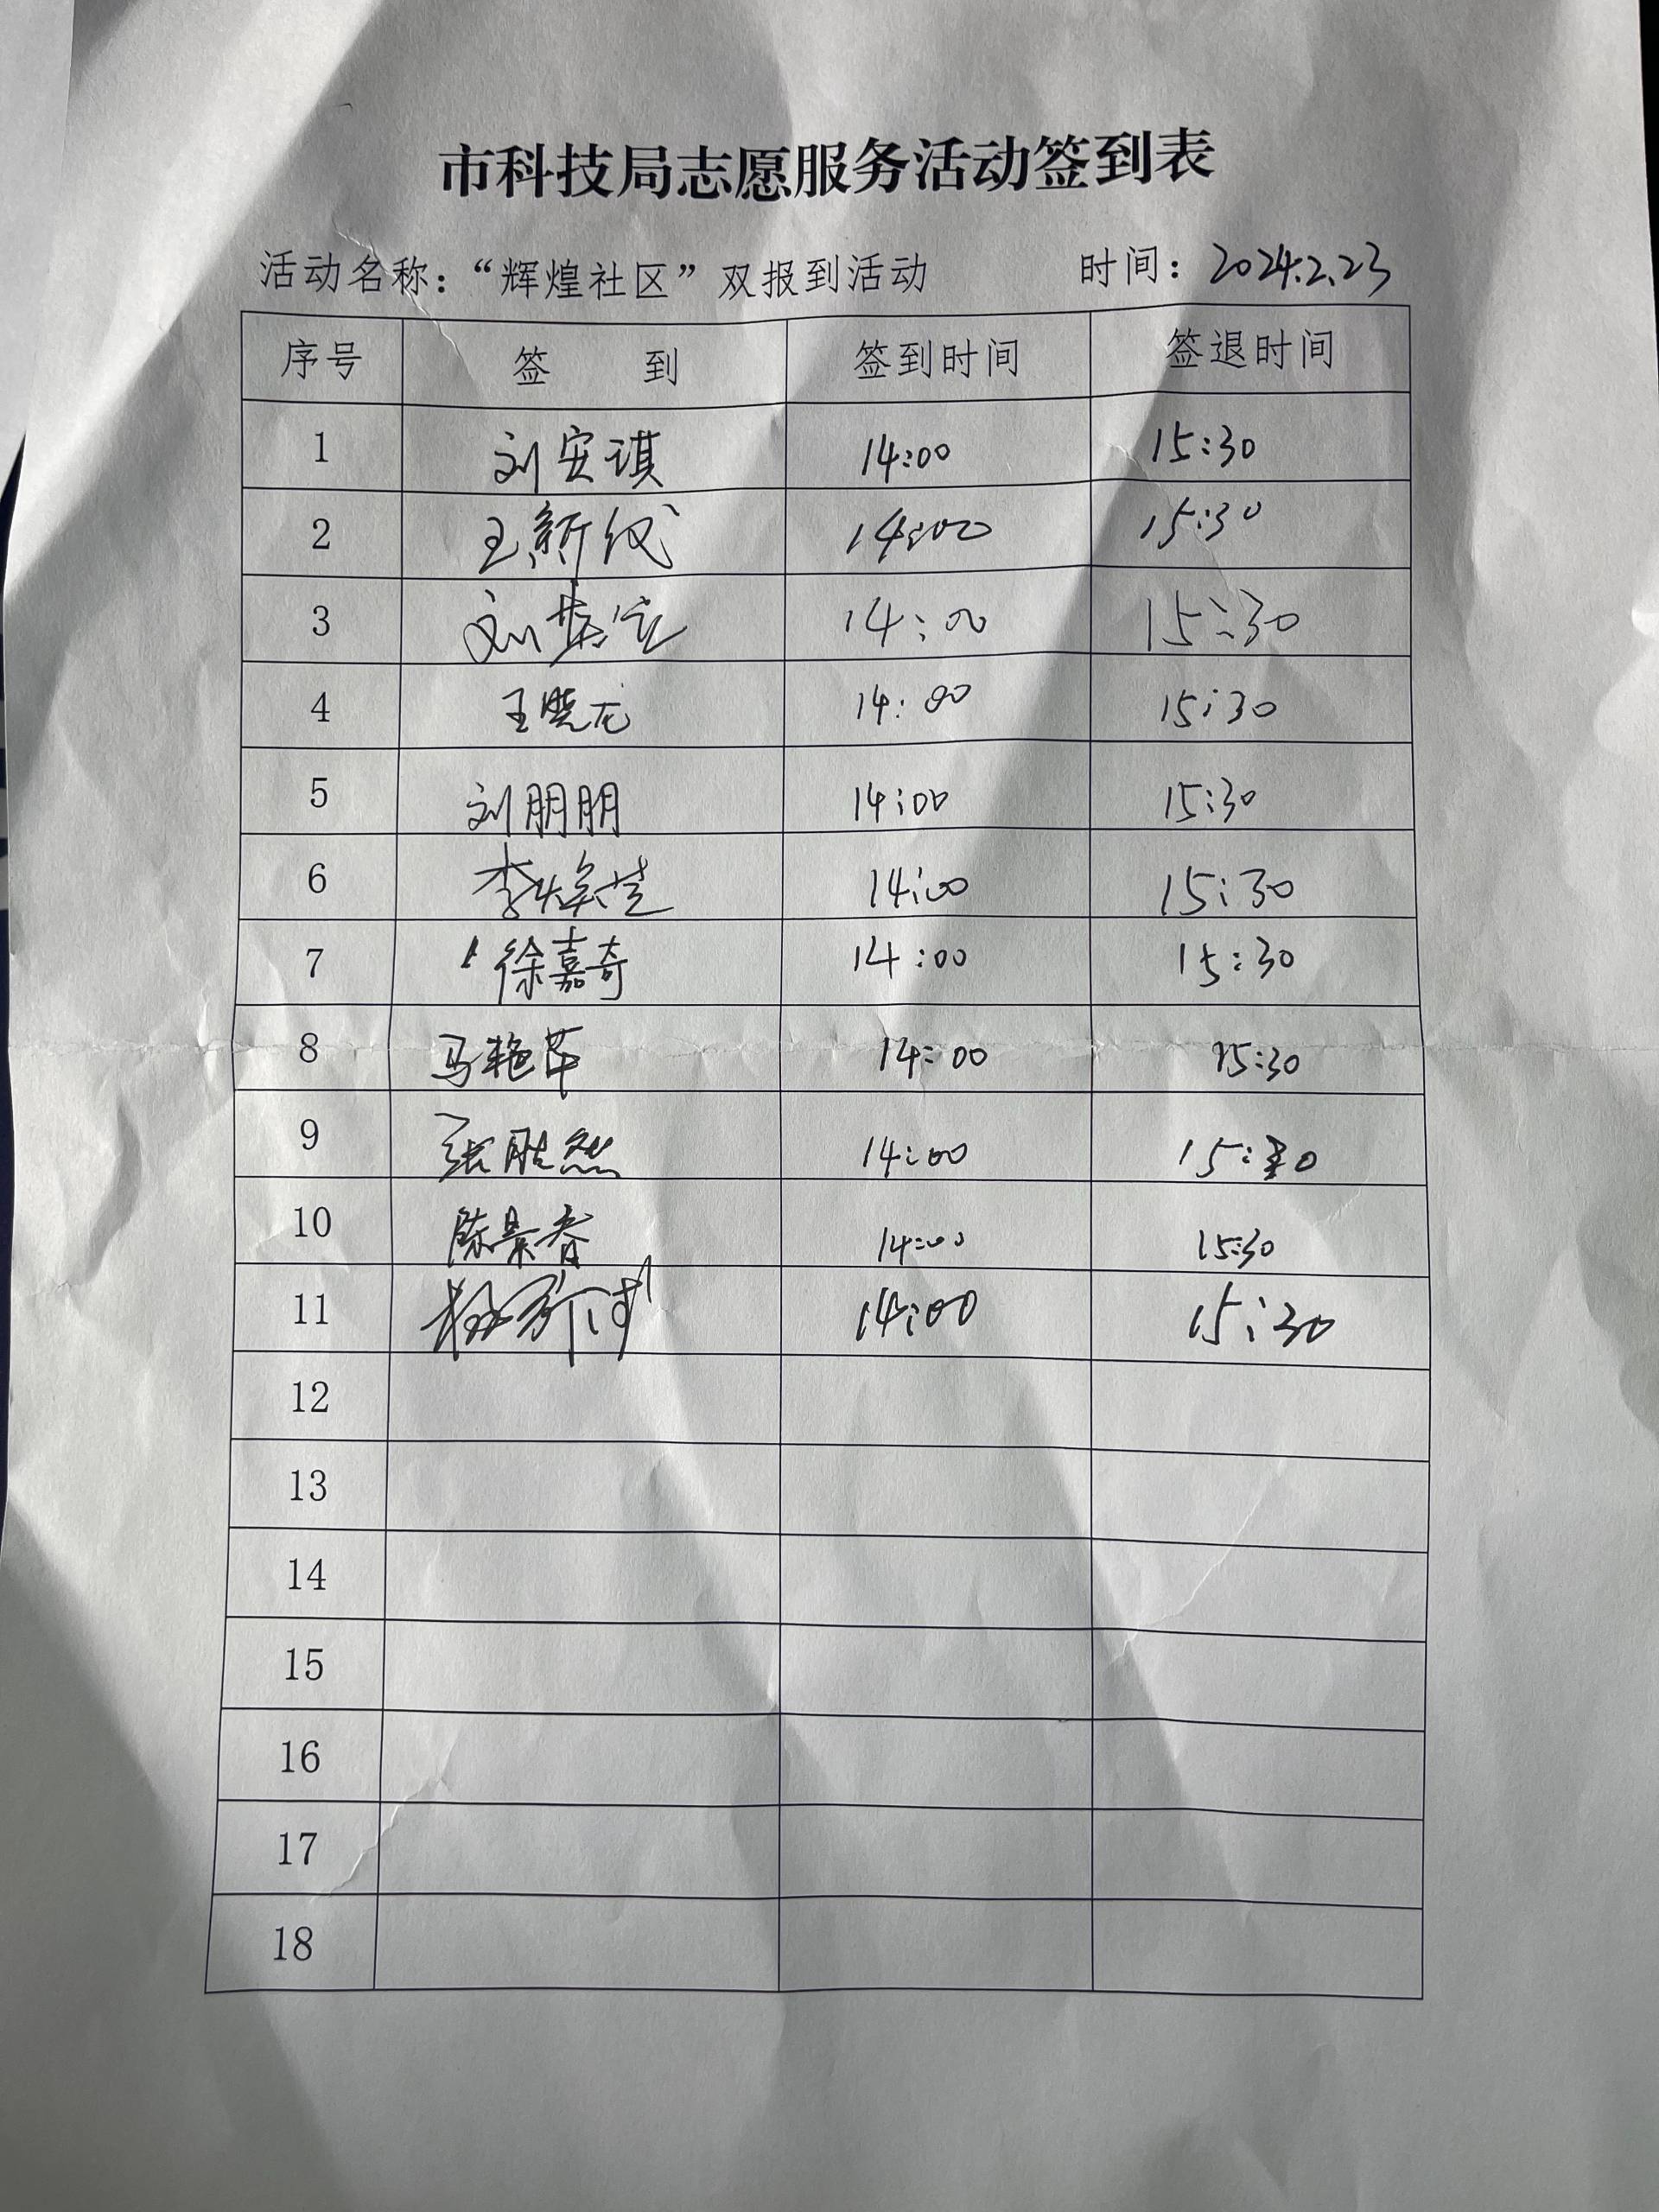 市科技局志愿服务活动签到表
活动名称：“辉煌社区”双报到活动 时间：2024.2.23
序号 签 到 签到时间 签退时间
1 刘安琪 14:00 15:30
2 王新仪 14:00 15:30
3 刘 14:00 15:30
4 王晓龙 14:00 15:30
5 刘朋朋 14:00 15:30
6 李焕芝 14:00 15:30
7 徐嘉奇 14:00 15:30
8 马艳苹 14:00 15:30
9 张胜然 14:00 15:30
10 陈景春 14:00 15:30
11 14:00 15:30
12
13
14
15
16
17
18